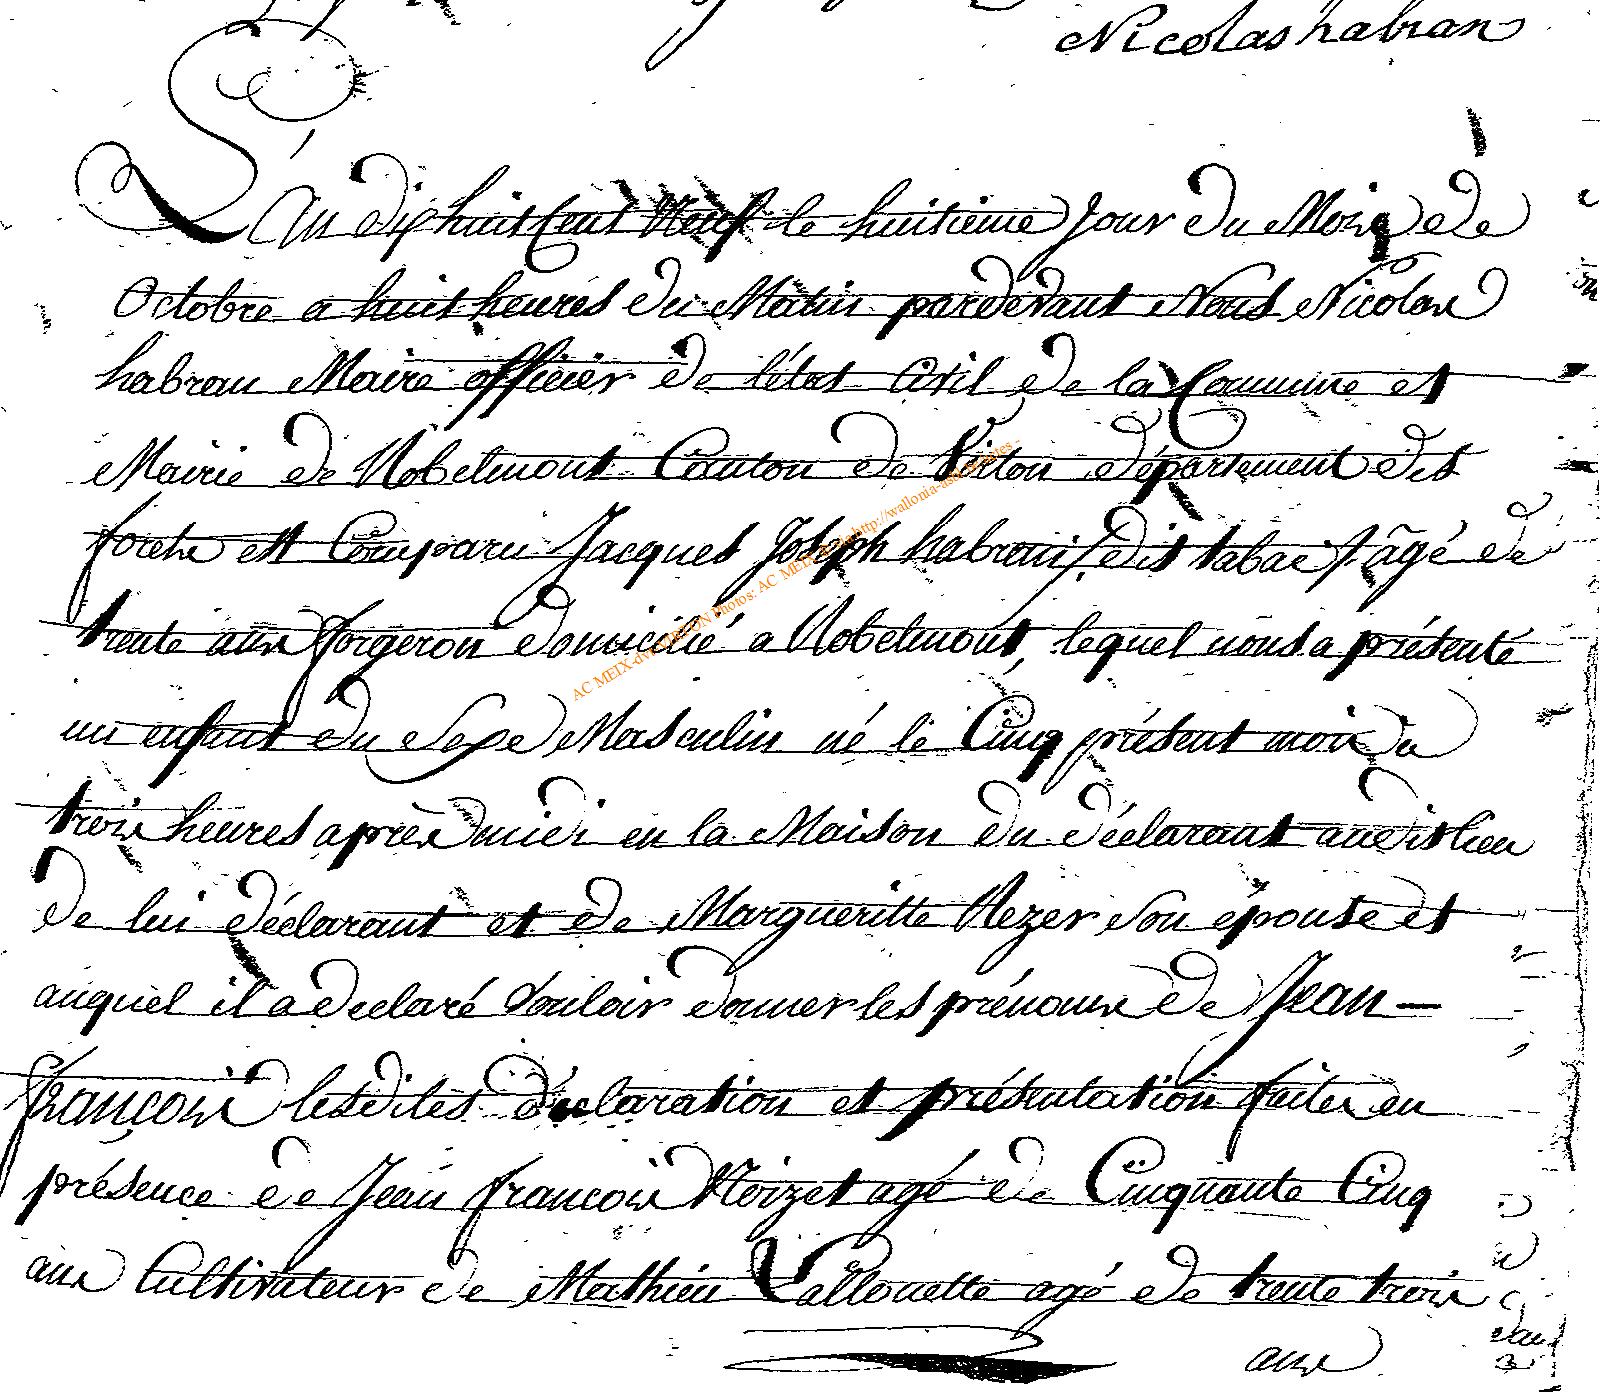 Nicolas habran
L'An dix huit Cent Neuf le huitième Jour du Mois de
Octobre a huit heures du Matin pardevant Nous Nicolas
habran Maire officier de l'état Civil de la Commune et
Mairie de Robelmont Canton de Virton département des
forêts est Comparu Jacques Joseph habran (dit tabac) âgé de
trente ans forgeron domicilié a Robelmont, lequel nous a présenté
un enfant du Sexe Masculin né le Cinq présent mois a
trois heures après midi en la Maison du déclarant audit lieu
de lui déclarant et de Margueritte Rezer son épouse et
auquel il a declaré Vouloir donner les prénoms de Jean -
françois lesdites déclaration et présentation faites en
présence de Jean françois Noizet agé de Cinquante Cinq
ans Cultivateur de Mathieu Lallouette agé de trente trois
ans